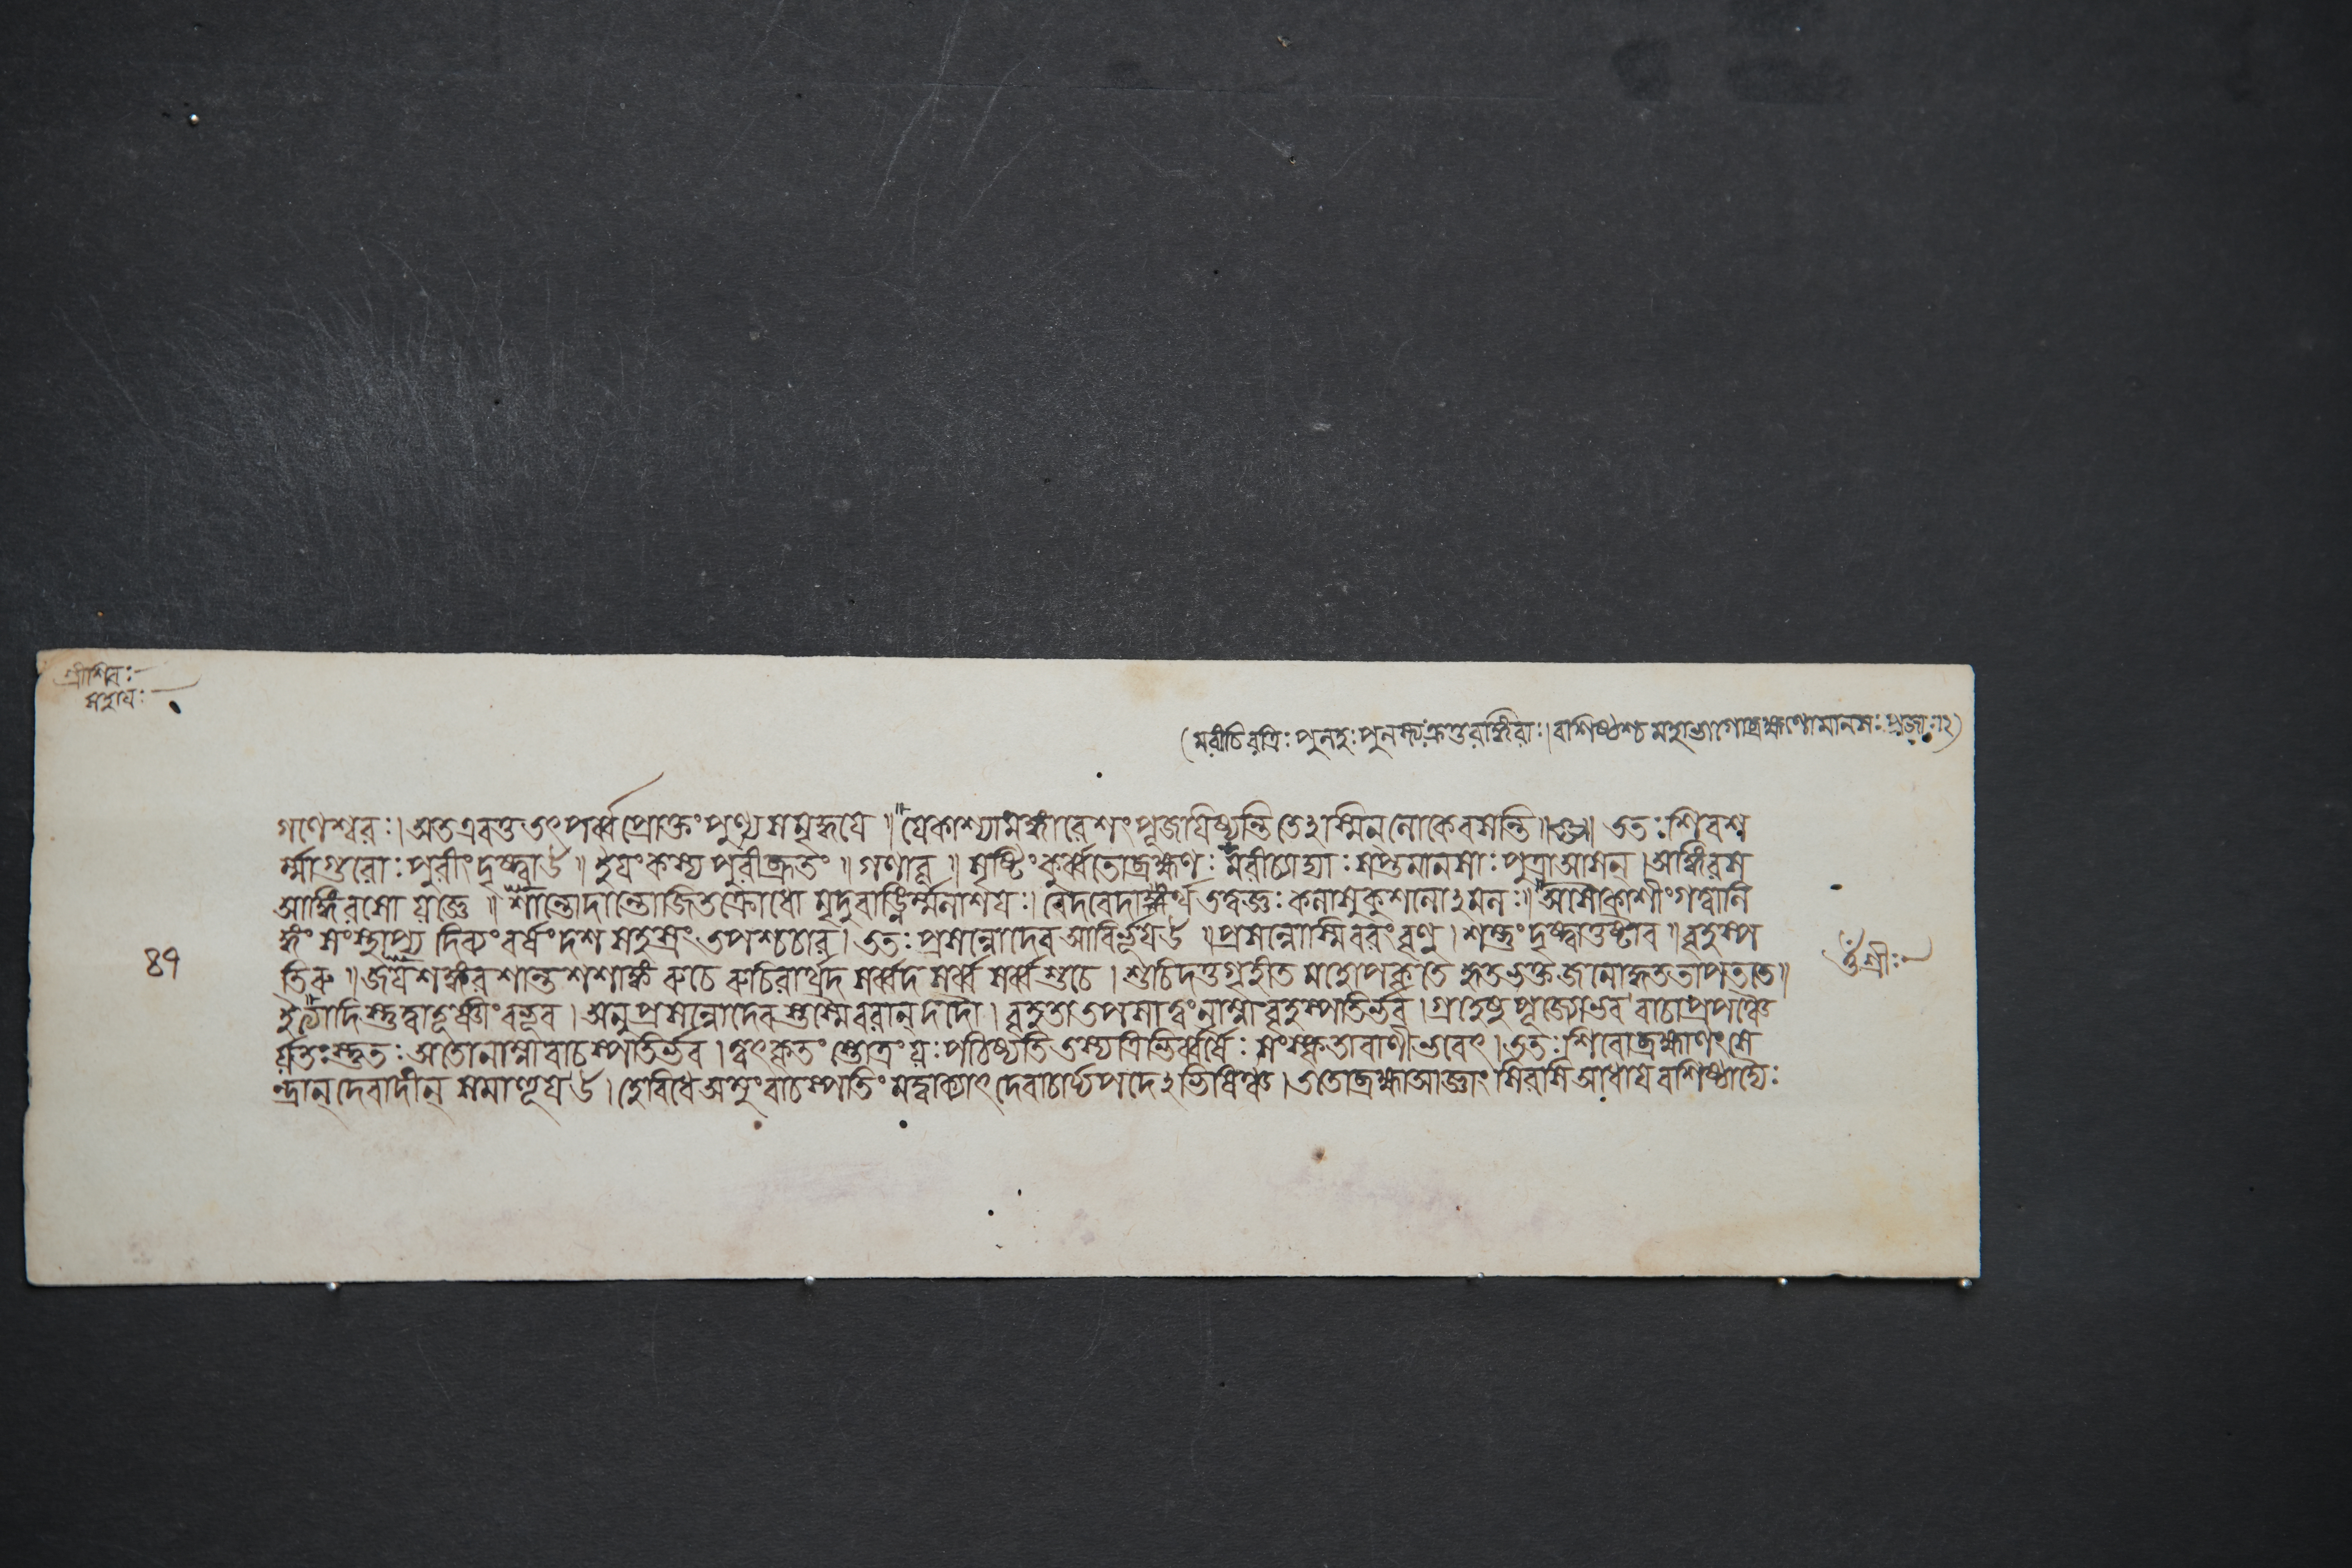 শ্রীশিবঃ
সহায়ঃ
(মরীচিরত্রিঃ পুলহঃ পুলস্ত্যঃ ক্রতুরঙ্গিরাঃ। বাশিষ্ঠশ্চ মহাভাগো ব্রহ্মণো মানসাঃ প্রজাঃ ॥২)
গণেশ্বরঃ। অতএবতু তৎপর্ব্ব প্রোক্তং পুণ্যসমৃদ্ধয়ে॥ যেকাশ্যামঙ্গীরেশং পূজয়িষ্যন্তি তেঽস্মিন্ লোকেবসন্তি॥ ততঃ শিবশ
র্ম্মাগুরোঃ পুরীং দৃষ্ট্বাহ॥ ইয়ং কস্য পুরীব্রূতং॥ গণাবূ॥ সৃষ্টিং কুর্ব্বতোব্রহ্মণঃ মরীচ্যাদ্যাঃ সপ্তমানসাঃ পুত্রাআসন্। আঙ্গিরস
আঙ্গিরসো যজ্ঞে॥ শান্তোদান্তোজিতক্রোধো মৃদুবাঙ্নির্ম্মলাশয়ঃ। বেদবেদাঙ্গার্থতত্ত্বজ্ঞঃ কলাসুকুশলোঽমলঃ॥ অসৌকাশীংগত্বালি
ঙ্গং সংস্থাপ্য দিব্যং বর্ষং দশ সহস্রং তপশ্চচার। ততঃ প্রসন্নোদেব আবির্ভূয়াহ॥ প্রসন্নোস্মিবরং বৃণু। শম্ভুং দৃষ্ট্বাতুষ্টাব॥ বৃহস্প
তিরু॥ জয়শঙ্কর শান্ত শশাঙ্ক রুচে রুচিরার্থদ সর্ব্বদ সর্ব্ব সর্ব্বশুচে। শুচিদত্তগৃহীত মহোপহৃতে হৃতভক্ত জনোদ্ধততাপততে॥
ইত্যাদিস্তুত্বাতূষ্ণীং বভূব। অনুপ্রসন্নোদেবস্তস্মৈবরান্ দদৌ। বৃহতাতপসাত্বং নাম্নাবৃহস্পতির্ভব। গ্রহেষু পূজ্যোভব বাচাপ্রপঞ্চৈ
র্য্যতঃস্তুতঃ অতোনাম্নাবাচস্পতির্ভব। ত্বৎকৃতং স্তোত্রং যঃ পঠিষ্যতি তস্যত্রিভির্ব্বর্ষৈঃ সংস্কৃতাবাণীভবেৎ। ততঃ শিবোব্রহ্মাণং সে
ন্দ্রান্ দেবাদীন্ সমাহূয়াহ। হেবিধে অমুং বাচস্পতিং মদ্বাক্যাৎ দেবাচার্য্যপদেঽভিষিঞ্চ। ততোব্রহ্মাআজ্ঞাং শিরসি আধায় বশিষ্ঠাদ্যৈঃ
৪৭
ওঁ শ্রীঃ